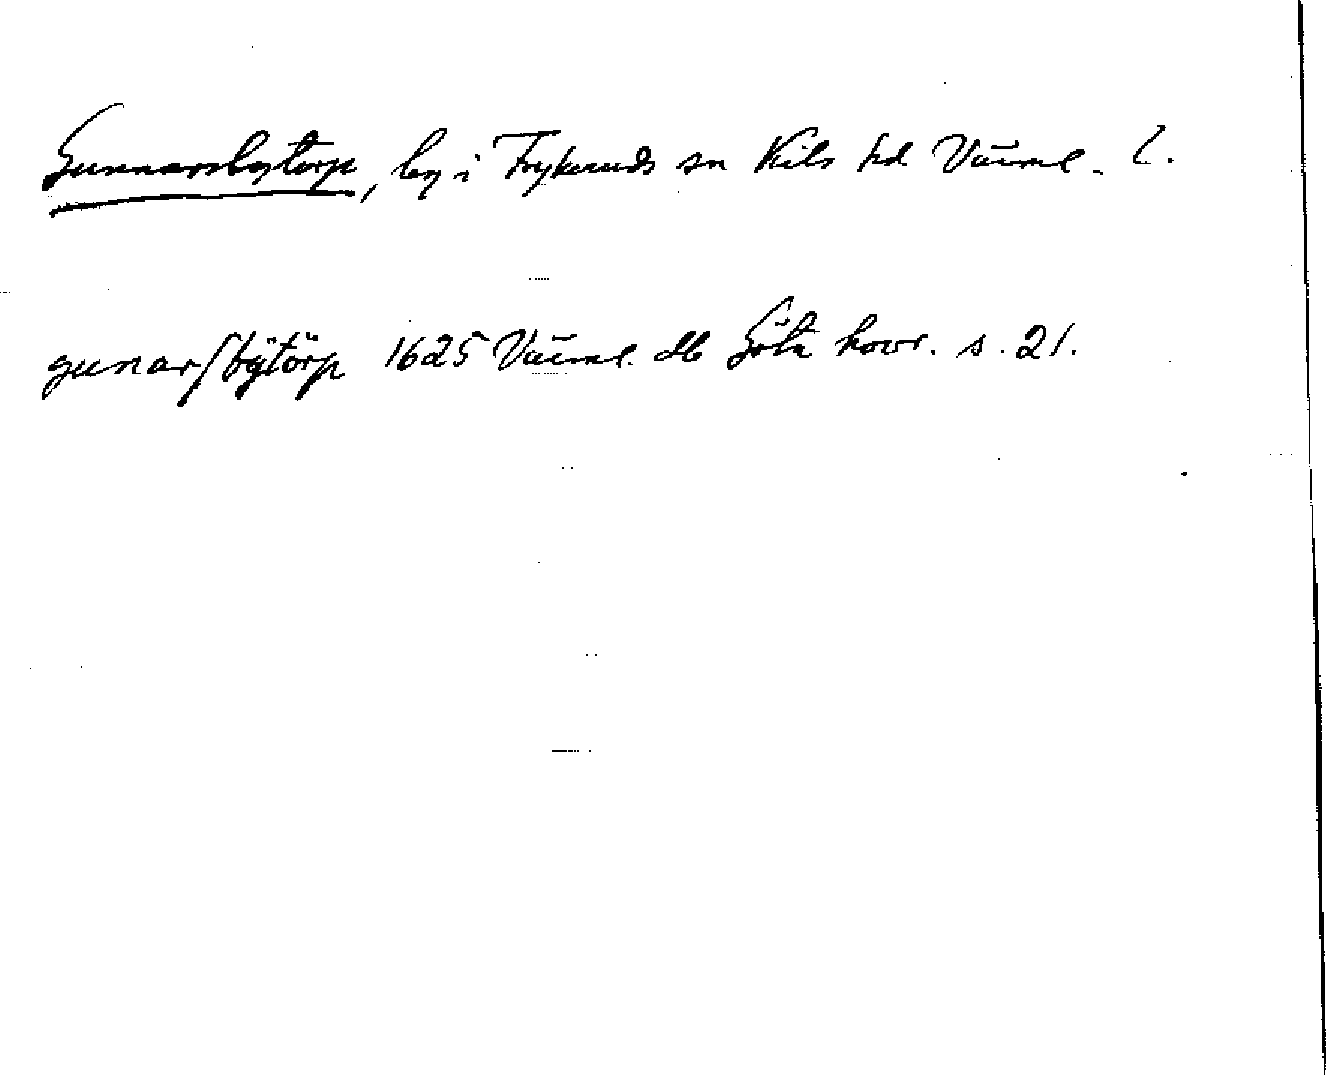 Gunnarsbytorp, by i Frykeruds sn Kils hd Värml. l.
gunarſbÿtörp 1625 Värml. db Göta hovr. s. 21.